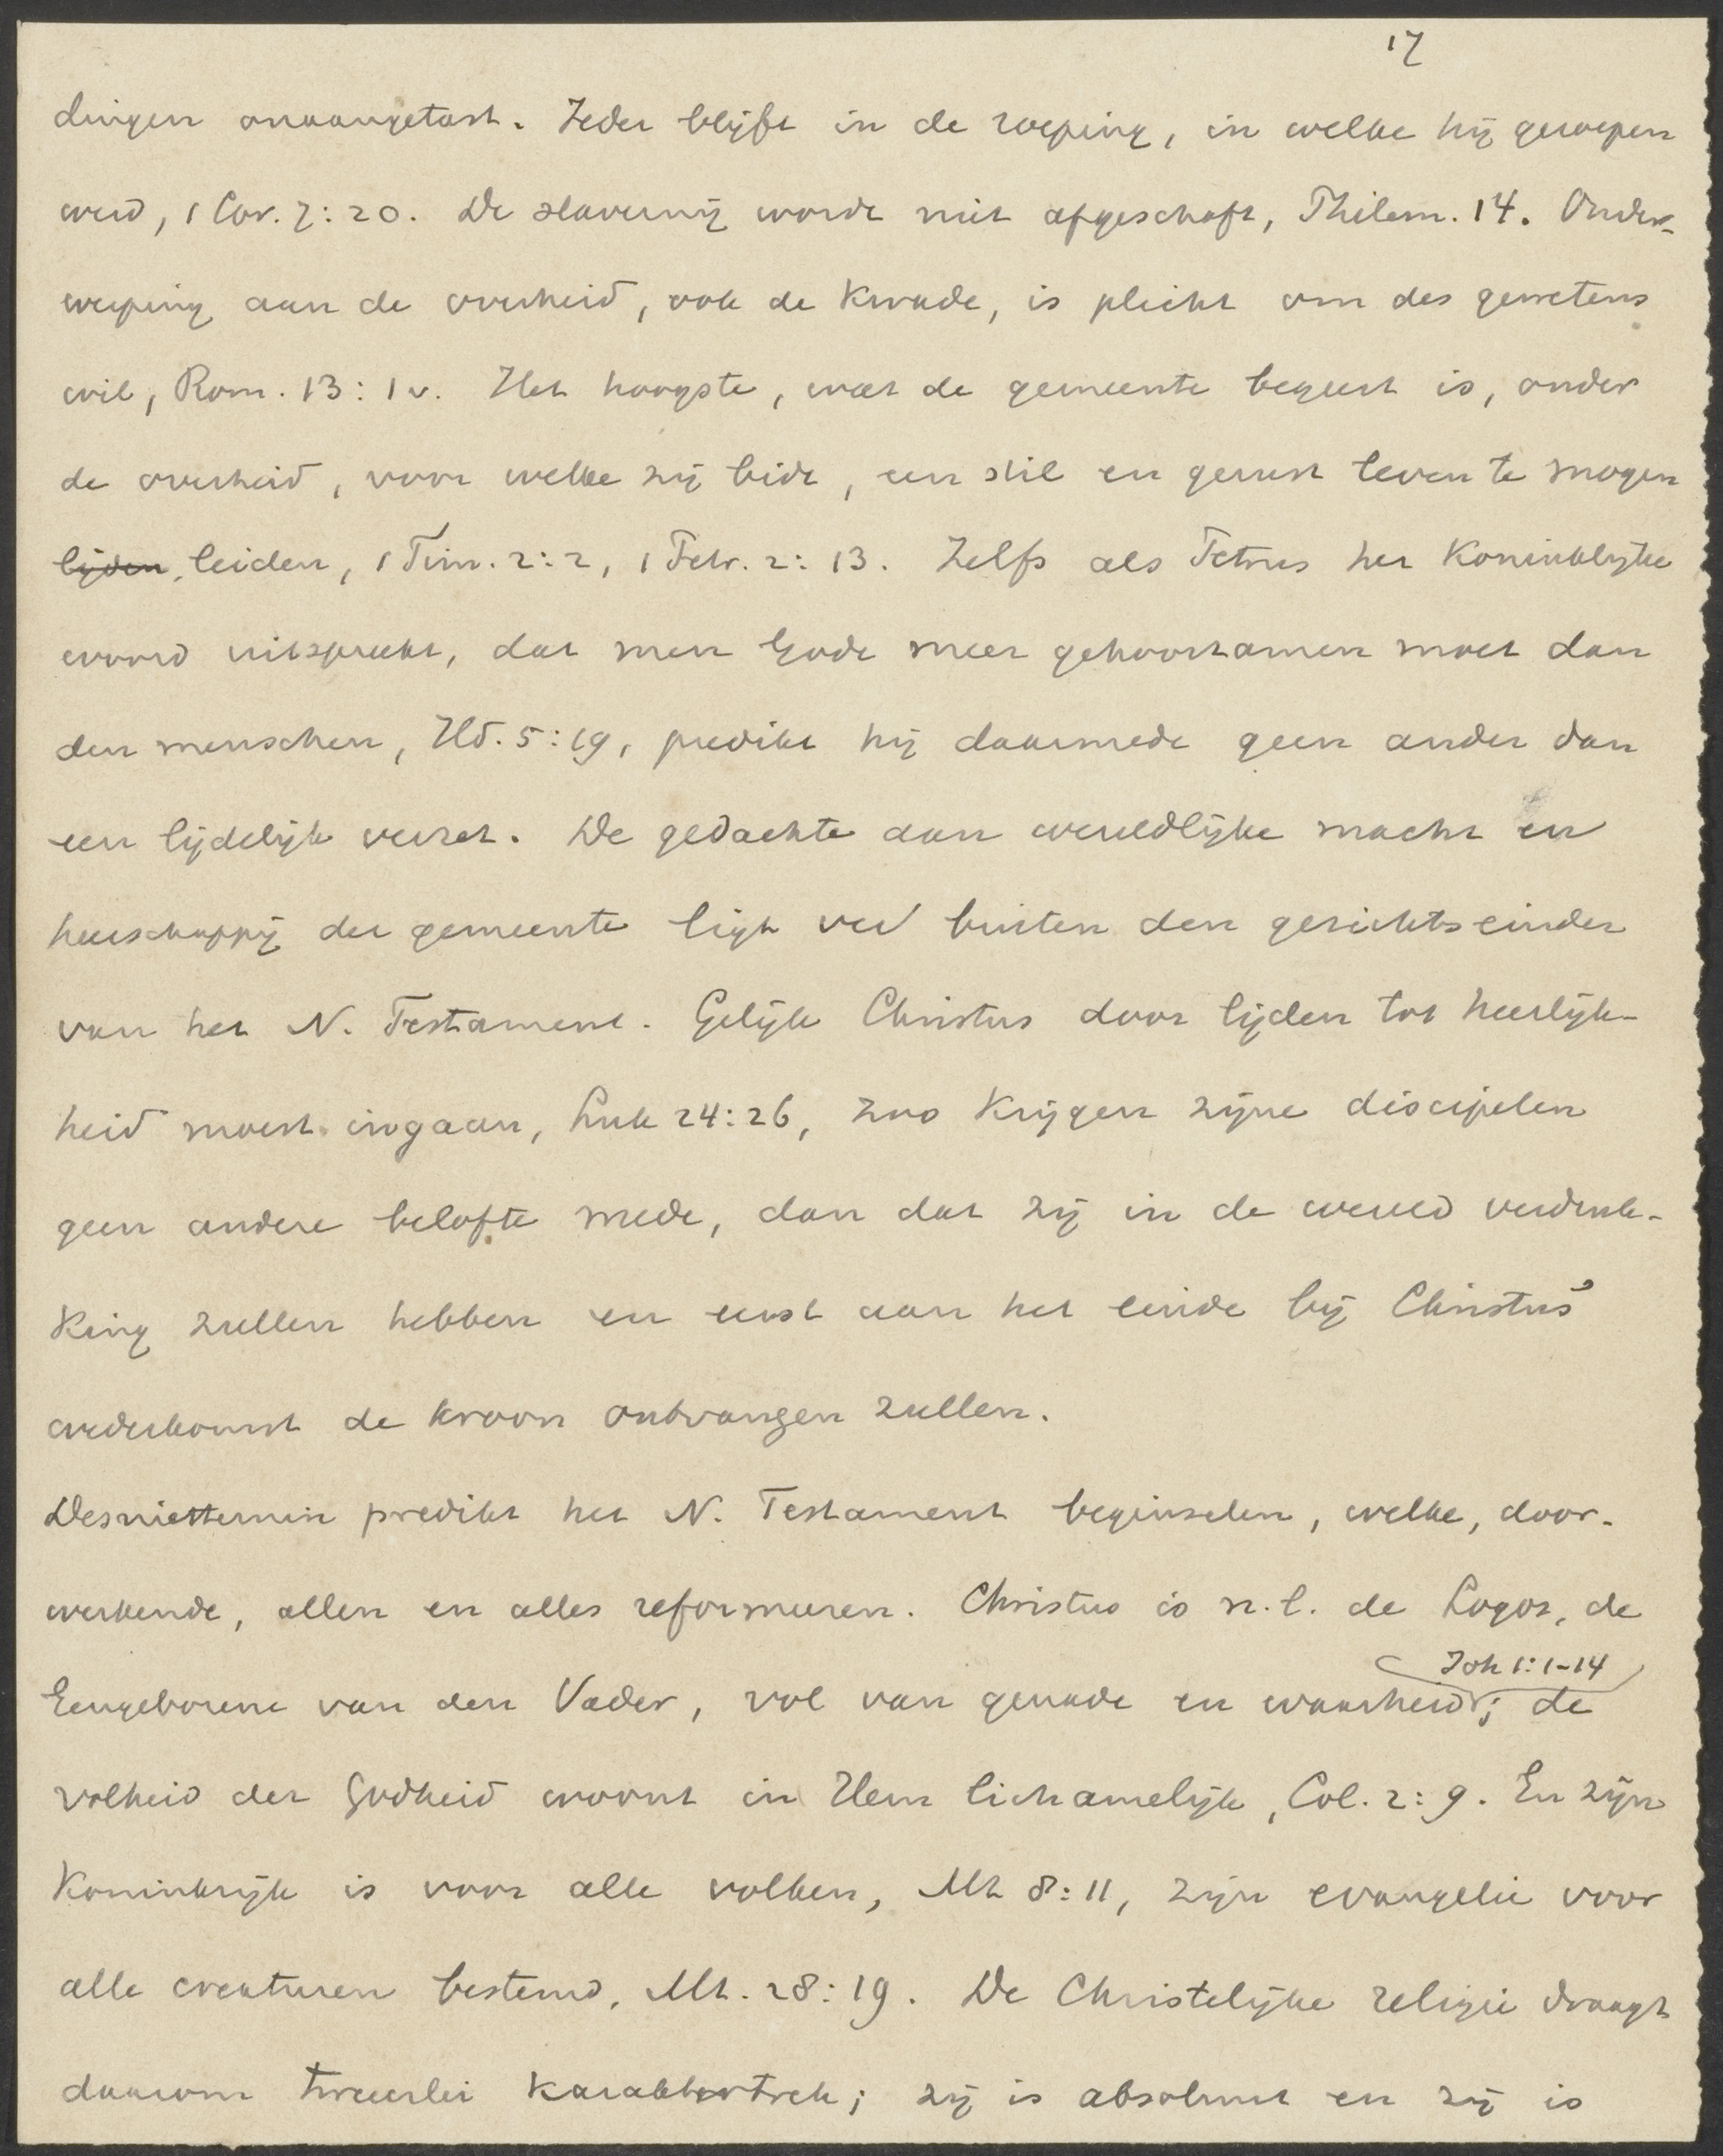 17
dingen onaangetast. Ieder blijft in de roeping, in welke hij geroepen
werd, 1 Cor. 7:20. De slavernij wordt niet afgeschaft, Philem. 14. Onder-
werping aan de overheid, ook de kwade, is plicht om des gewetens
wil, Rom. 13:1v. Het hoogste, wat de gemeente begeert is, onder
de overheid, voor welke zij bidt, een stil en gerust leven te mogen
lijden, leiden, 1 Tim. 2:2, 1 Petr. 2:13. Zelfs als Petrus het Koninklijke
woord uitspreekt, dat men Gode meer gehoorzamen moet dan
den menschen, Hd. 5:19, predikt hij daarmede geen ander dan
een lijdelijk verzet. De gedachte aan wereldlijke macht en
heerschappij der gemeente ligt ver buiten den gezichtseinder
van het N. Testament. Gelijk Christus door lijden tot heerlijk-
heid moest ingaan, Luk 24:26, zoo krijgen zijne discipelen
geen andere belofte mede, dan dat zij in de wereld verdruk-
king zullen hebben en eerst aan het einde bij Christus'
wederkomst de kroon ontvangen zullen.
Desniettemin predikt het N. Testament beginselen, welke, door-
werkende, allen en alles reformeeren. Christus is n.l. de Logos, de
Joh 1:1-14
Eengeborene van den Vader, vol van genade en waarheid; de
volheid der Godheid woont in Hem lichamelijk, Col. 2:9. En zijn
Koninkrijk is voor alle volken, Mt 8:11, zijn evangelie voor
alle creaturen bestemd, Mt. 28:19. De Christelijke religie draagt
daarom tweeerlei karaktertrek; zij is absoluut en zij is